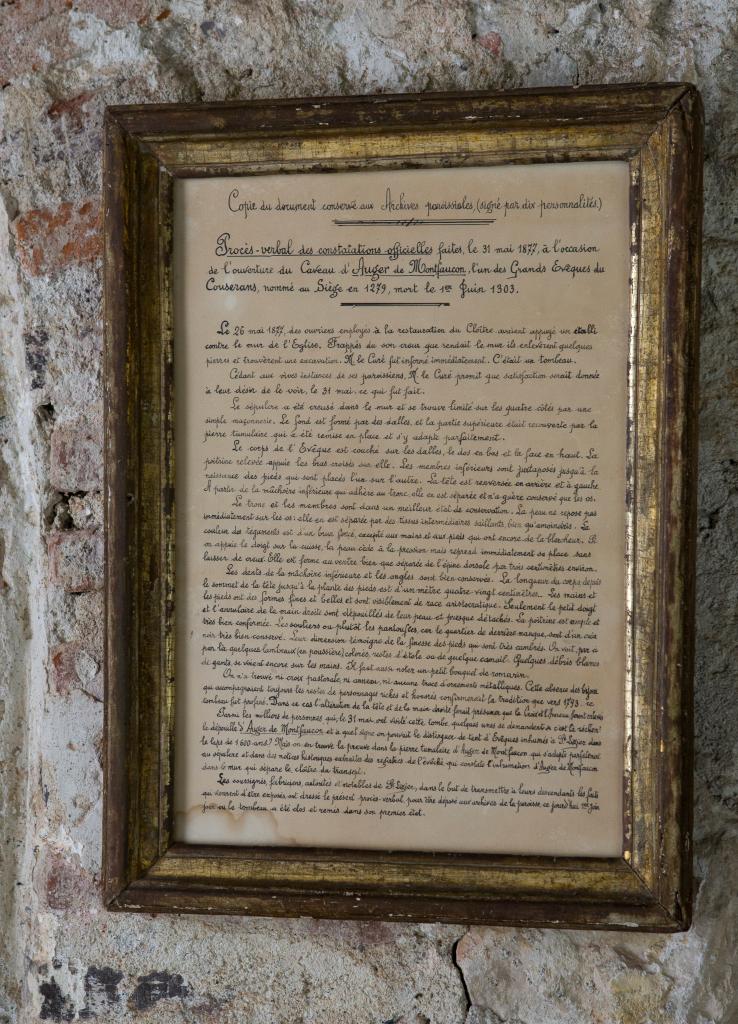 Copie du document conservé aux Archives paroissiales, (signé par dix personnalités)
Procès-verbal des constatations officielles faites, le 31 mai 1877, à l'occasion
de l'ouverture du Caveau d'Auger de Montfaucon, l'un des Grands Evêques du
Couserans, nommé au Siège en 1279, mort le 1er Juin 1303.
Le 26 mai 1877, des ouvriers employés à la restauration du Cloître avaient appuyé un établi
contre le mur de l'Eglise. Frappés du son creux que rendait le mur ils enlevèrent quelques
pierres et trouvèrent une excavation. M. le Curé fut informé immédiatement. C'était un tombeau.
Cédant aux vives instances de ses paroissiens, M. le Curé promit que satisfaction serait donnée
à leur désir de le voir, le 31 mai, ce qui fut fait.
Le sépulcre a été creusé dans le mur et se trouve limité sur les quatre côtés par une
simple maçonnerie. Le fond est formé par des dalles, et la partie supérieure était recouverte par la
pierre tumulaire qui a été remise en place et s'y adapte parfaitement.
Le corps de l'Evêque est couché sur les dalles, le dos en bas et la face en haut. La
poitrine relevée appuie les bras croisés sur elle. Les membres inférieurs sont juxtaposés jusqu'à la
naissance des pieds qui sont placés l'un sur l'autre. La tête est renversée en arrière et à gauche.
A partir de la mâchoire inférieure qui adhère au tronc, elle en est séparée et n'a guère conservé que les os.
Le tronc et les membres sont dans un meilleur état de conservation. La peau ne repose pas
immédiatement sur les os: elle en est séparée par des tissus intermédiaires saillants, bien qu'amoindris. La
couleur des téguments est d'un brun foncé, excepté aux mains et aux pieds qui ont encore de la blancheur. Si
on appuie le doigt sur la cuisse, la peau cède à la pression mais reprend immédiatement sa place sans
laisser de creux. Elle est ferme au ventre bien que séparée de l'épine dorsale par trois centimètres environ.
Les dents de la mâchoire inférieure et les ongles sont bien conservés. La longueur du corps depuis
le sommet de la tête jusqu'à la plante des pieds est d'un mètre quatre-vingt centimètres. Les mains et
les pieds ont des formes fines et belles et sont visiblement de race aristocratique. Seulement le petit doigt
et l'annulaire de la main droite sont dépouillés de leur peau et presque détachés. La poitrine est ample et
très bien conformée. Les souliers ou plutôt les pantoufles, car le quartier de derrière manque, sont d'un cuir
noir très bien conservé. Leur dimension témoigne de la finesse des pieds qui sont très cambrés. On voit, par ci
par là quelques lambeaux (en poussière) colorés, restes d'étole ou de quelque camail. Quelques débris blancs
de gants, se voient encore sur les mains. Il faut aussi noter un petit bouquet de romarin.
On n'a trouvé ni croix pastorale, ni anneau, ni aucune trace d'ornements métalliques. Cette absence des bijoux
qui accompagnaient toujours les restes de personnages riches et honorés confirmeraient la tradition que vers 1793, ce
tombeau fut profané. Dans ce cas l'altération de la tête et de la main droite ferait présumer que la Croix et l'Anneau furent enlevés
Parmi les milliers de personnes qui, le 31 mai, ont visité cette tombe, quelques unes se demandent si c'est là réellement
la dépouille d'Auger de Montfaucon et à quel signe on pouvait le distinguer de tant d'Evêques inhumés à St Lizier dans
le laps de 1600 ans? Mais on en trouve la preuve dans la pierre tumulaire d'Auger de Montfaucon qui s'adapte parfaitement
au sépulcre et dans des notices historiques extraites des registres de l'évêché qui constate l'inhumation d'Auger de Montfaucon
dans le mur qui sépare le cloître du transept.
Les soussignés, fabriciens, autorités et notables de St Lizier, dans le but de transmettre à leurs descendants les faits
qui viennent d'être exposés, ont dressé le présent procès-verbal, pour être déposé aux archives de la paroisse, ce jourd'hui 1er Juin
jour où le tombeau a été clos et remis dans son premier état.